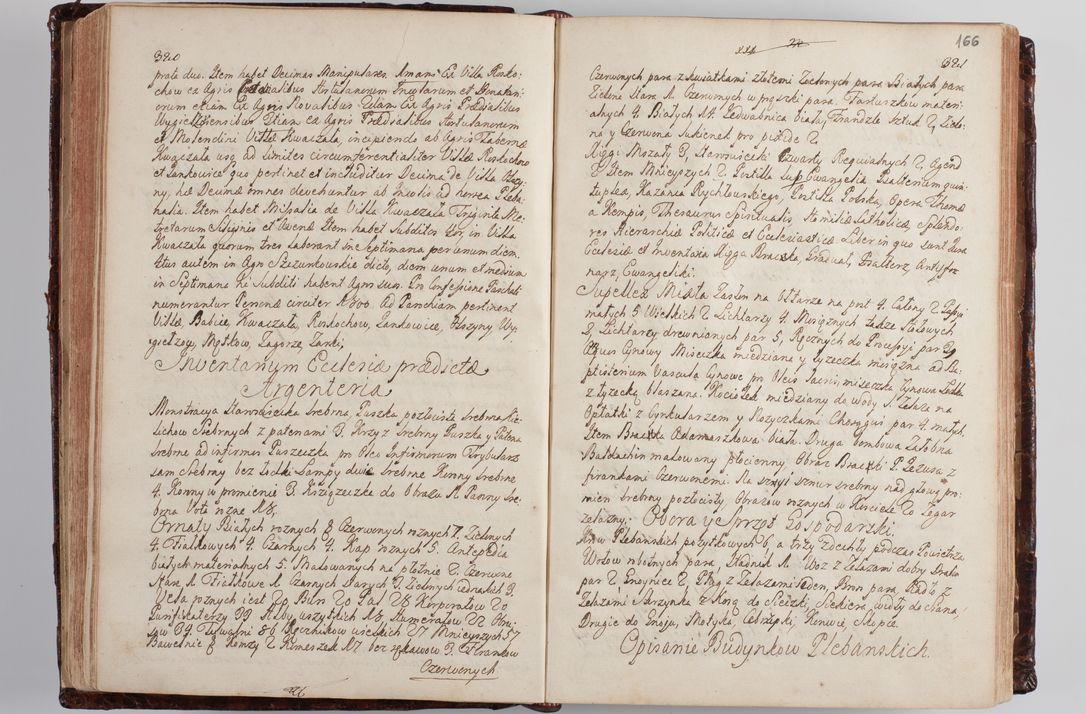 320
prata duo. Item habet Decimas Manipulares. Amans Ex Villa Rosko-
chow ex Agris Prædialibus Hortusanorum Inquilinorum et Donatari-
orum etiam Ex Agris Novalibus. Zelans Ex Agris Prædialibus
Wygiełzoviensibus Etiam ex Agris Prædialibus Hortusanorum
et Molendini Villæ Kwaczała, incipiendo ab Agris Tabernæ
Kwaczała usq ad limites circumferentialiter Villæ Roskochow
et Jankovice quo pertinet et includitur Decima de Villa Płazy-
ny, hæ Decimæ omnes devehuntur ab Incolis ad horrea Pleba-
nalia. Item habet Missalia de Villa Kwaczała Triginta Me-
tretarum Siliginis et Avenæ Item habet Subditos in Villa
Kwaczała quorum tres laborant in Septimana per unum diem.
Unus autem in Agro Szczurkowskie dicto, diem unum et medium
in Septimana hi Subditi habent Agros suos. In Confessione Paschali
numerantur Personæ circiter 1800. Ad Parochiam pertinent
Villæ Babice, Kwaczała, Roskochow, Jankowice, Płazyny, Wy-
giełzow, Mętkow, Zagorze, Żarki,
Inventarium Ecclesiæ prædictæ
Argenteria
Monstracya Staroswiecka Srebrna, Puszka pozłocista srebrna Kie-
lichow Srebrnych z patenami 3. Krzyz Srebrny Puszka y Patena
srebrne ad infirmos Puszeczka pro Oleo Infirmorum Trybularz
sam Srebrny bez Łodki Lampy dwie Srebrne Korony srebrne
4. Korony w promienie 3. Książeczka do Obrazu N. Panny Sre-
brna Vota rozne 18,
Ornaty Białych roznych 8 Czerwonych roznych 7. Zielonych
4. Fiałkowych 4. Czarnych 4. Kap roznych 5. Antepedia
białych materialnych 5 Malowanych na płotnie 2. Czerwone
Stare 1. Fiałkowe 1. Czarnych Starych 3. Zielonych
Vela roznych iest 20 Burs 20 Pal 28 Korporałow 20
Puryfikaterzy 99 Alby wszystkich 18, Humerałow 22 Obru-
sow 64. Tuwalni 86 Ręcznikow wielkich 27 Mnieyszych 57
Bawełnic 8 Komzy 2 Komeszek 17 bez rękawow 3. Firankow
Czerwonych
166
321
Czerwonych para z kwiatkami złotemi Zielonych para Białych para
Zielone Stare 1. Czerwonych w prążki para. Fartuszkow materi-
alnych 4 Białych 14. Jedwabnica biała, Frandzle sztuk 2, Zielo-
na y Czerwona Sukienek pro pixide 2
Xięgi Mszały 3, Staroswiecki Czwarty Requialnych 2. Agend
2. Item Mnieyszych 2. Postilla sup Evangelia Psalterium quin-
tuplex, Kazania Rychłowskiego, Postilla Polska, Opera Thomæ
a Kempis, Thesaurus Spiritualis, Homiliæ Catholicæ, Splendo-
res Hierarchiæ Politicæ et Ecclesiasticæ, Liber in quo sunt Jura
Ecclesiæ et Inventaria Xięga Bracka, Gradual, Psalterz, Antyfo-
narz, Ewangeliki.
Supellex Miała Zasłon na Ołtarze na post 4. Całony 2
małych 5 Wielkich 2 Lichtarzy 4 Mosięznych także Stołowych
2, Lichtarzy drewnianych par 5, Ręcznych do Processyi par 2
Aqueus Cynowy Miseczka miedziana y łyzeczka mosięzna ad Ba-
ptisterium Vascula Cynowe pro Oleis sacris, miseczka Cynowa
z łyzecką blaszana. Kociołek miedziany do Wody S. Żelaza na
Opłatki z Cyrkularzem y Nozyczkami Chorągwi par 4. małych
Item Bracka Adamaszkowa biała. Druga bombowa Załobna
Baldachin malowany płocienny Obraz Bracki P. Jezusa z
firankami Czerwonemi. Na szyi sznur srebrny nad głową pro-
mien srebrny pozłocisty Obrazow roznych w Kosciele 20 Zegar
zelazny. Obora y Sprzęt Gospodarski.
Krow Plebanskich pozytkowych 6, a trzy zdechły podczas Powietrza
Wołow robotnych para, Stadnik 1. Woz z Zelazami doby
par 2 Gnoynice 2 Pług z Zelazami ieden, Bron para, Radło z
Zelazami Skrzynka z Kosą do Sieczki, Siekiera, widły do Siana,
Drugie do Gnoju, Motyka, Cebrzyki, Konwie, Skopce.
Opisanie Budynkow Plebanskich.